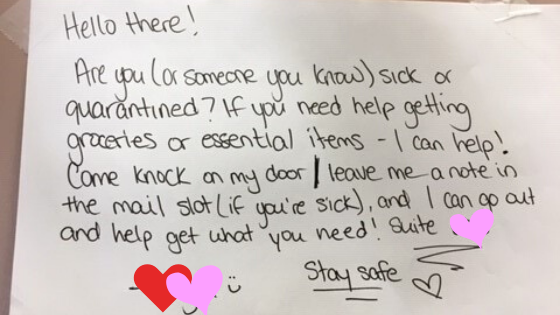 Hello there!
Are you (or someone you know) sick or
quarantined? If you need help getting
groceries or essential items - I can help!
Come knock on my door / leave me a note in
the mail slot (if you're sick), and I can go out
and help get what you need! Suite
Stay safe